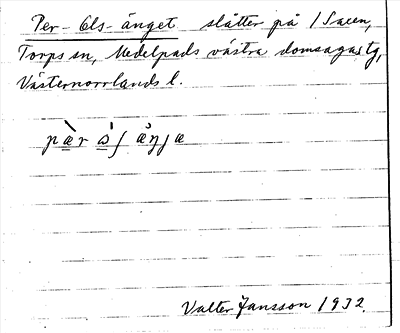 Per-Ols-änget slåtter på
Torps sn, Medelpads västra domsagas tg,
Västernorrlands l.
Valter Jansson 1932.